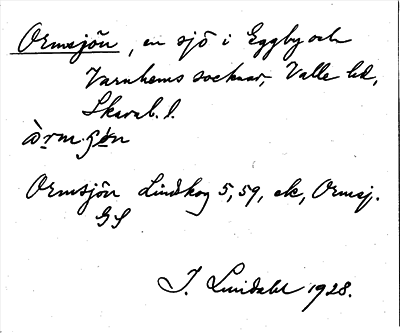 Ormsjön, en sjö i Eggby och
Varnhems socknar, Valle hd,
Skarab. l.
Ormsjön Lindskog 5, 59, ek, Ormsj.
GS
J. Lundahl 1928.